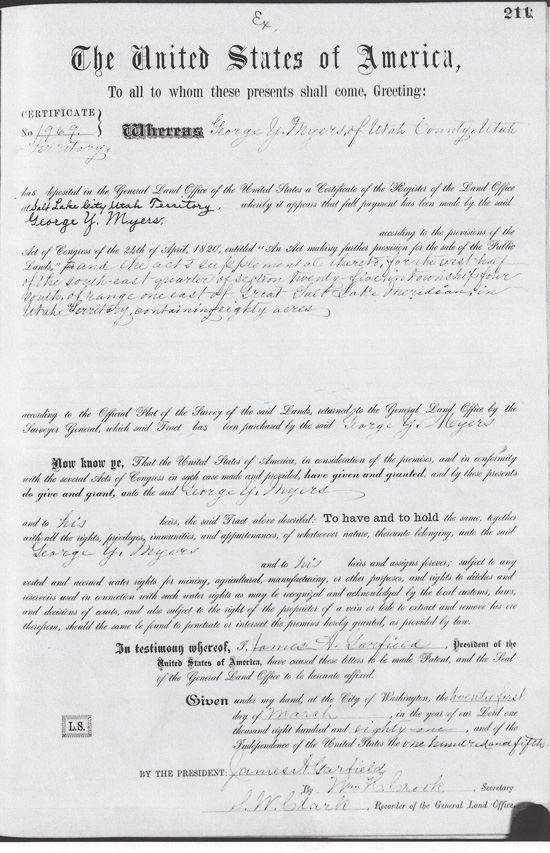 Ex.
211
The United States of America,
To all to whom these presents shall come, Greeting:
CERTIFICATE
No 1969. Whereas George Y. Myers, of Utah County, Utah
Territory,
has deposited in the General Land Office of the United States a Certificate of the Register of the Land Office
at Salt Lake City, Utah Territory, whereby it appears that full payment has been made by the said
George Y. Myers,
according to the provisions of the
Act of Congress of the 24th of April, 1820, entitled "An Act making further provision for the sale of the Public
Lands," and the acts supplemental thereto, for the west half
of the south east quarter of section twenty-five, in township five
south, of range one east of Great Salt Lake Meridian, in
Utah Territory, containing eighty acres
according to the Official Plat of the Survey of the said Lands, returned to the General Land Office by the
Surveyor General, which said Tract has been purchased by the said George Y. Myers
Now know ye, That the United States of America, in consideration of the premises, and in conformity
with the several Acts of Congress in such case made and provided, have given and granted, and by these presents
do give and grant, unto the said George Y. Myers
and to his heirs, the said Tract above described: To have and to hold the same, together
with all the rights, privileges, immunities, and appurtenances, of whatsoever nature, thereunto belonging, unto the said
George Y. Myers
and to his heirs and assigns forever; subject to any
vested and accrued water rights for mining, agricultural, manufacturing, or other purposes, and rights to ditches and
reservoirs used in connection with such water rights as may be recognized and acknowledged by the local customs, laws,
and decisions of courts, and also subject to the right of the proprietor of a vein or lode to extract and remove his ore
therefrom, should the same be found to penetrate or intersect the premises hereby granted, as provided by law.
In testimony whereof, I, James A. Garfield, President of the
United States of America, have caused these letters to be made Patent, and the Seal
of the General Land Office to be hereunto affixed.
Given under my hand, at the City of Washington, the twenty first
day of March, in the year of our Lord one
thousand eight hundred and eighty-one, and of the
Independence of the United States the one hundred and fifth.
L.S.
BY THE PRESIDENT: James A. Garfield
By Wm H. Crook, Secretary.
S. W. Clark, Recorder of the General Land Office.